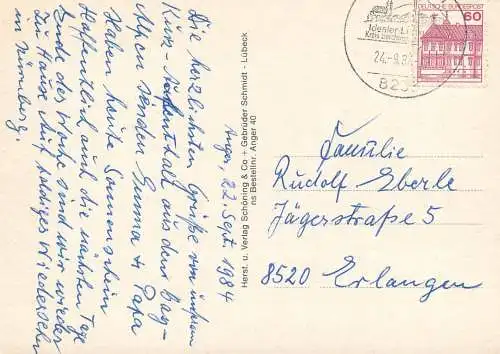 Anger, 22. Sept. 1984
Die herzlichsten Grüße von unserem
Kurz-Aufenthalt aus den Bay-
Alpen senden Emma u. Papa
Haben heute Sonnenschein
Hoffentlich auch die nächsten Tage
Ende der Woche sind wir wieder
zu Hause. Auf baldiges Wiedersehen
in Nürnberg.
Herst. u. Verlag Schöning & Co + Gebrüder Schmidt - Lübeck
Bestellnr. Anger 40
DEUTSCHE BUNDESPOST
60
24.-9.8
823
Familie
Rudolf Eberle
Jägerstraße 5
8520 Erlangen